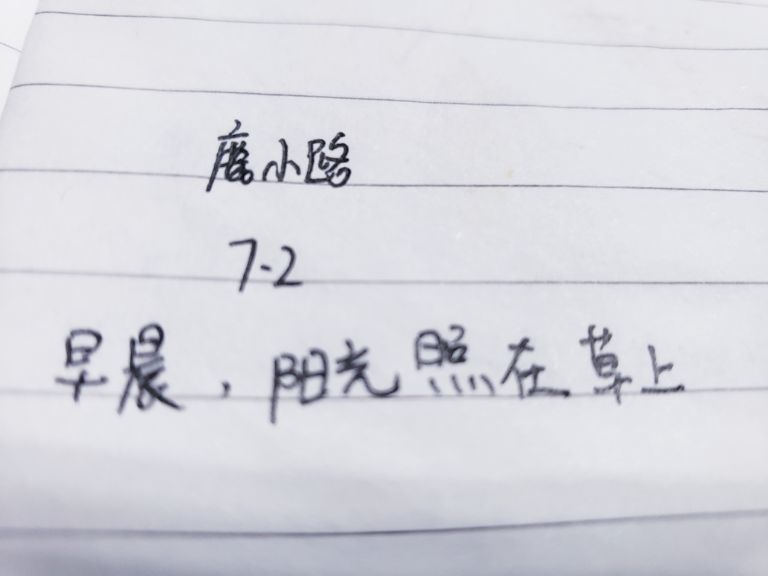 唐小路
7.2
早晨，阳光照在草上